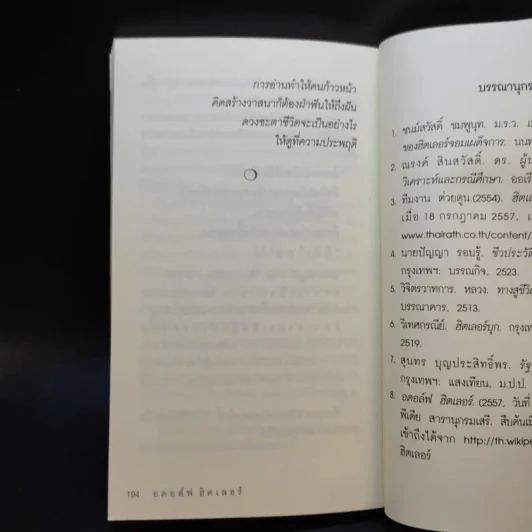 การอ่านทำให้คนก้าวหน้า
คิดสร้างวาสนาก็ต้องฝ่าฟันให้ถึงฝัน
ดวงชะตาชีวิตจะเป็นอย่างไร
ให้ดูที่ความประพฤติ
194 อดอล์ฟ ฮิตเลอร์
บรรณานุกร
1. ชนม์สวัสดิ์ ชมพูนุท. ม.ร.ว.
ของฮิตเลอร์จอมเผด็จการ. นนท
2. ณรงค์ สินสวัสดิ์. ดร. ผู้น
วิเคราะห์และกรณีศึกษา. ออเรี
3. ทีมงาน ต่วยตูน.(2554). ฮิตเล
เมื่อ 18 กรกฎาคม 2557, เ
www.thairath.co.th/content/
4. นายปัญญา รอบรู้. ชีวประวั
กรุงเทพฯ: บรรณกิจ, 2523.
5. วิจิตรวาทการ. หลวง. ทางสู้ชีวิ
บรรณาคาร, 2513.
6. วิเทศกรณีย์. ฮิตเลอร์บุก. กรุงเท
2519.
7. สุนทร บุญประสิทธิ์พร. รัฐ
กรุงเทพฯ: แสงเทียน, ม.ป.ป.
8. อดอล์ฟ ฮิตเลอร์. (2557, วันที่
พีเดีย สารานุกรมเสรี. สืบค้นเมื
เข้าถึงได้จาก http://th.wikipe
ฮิตเลอร์